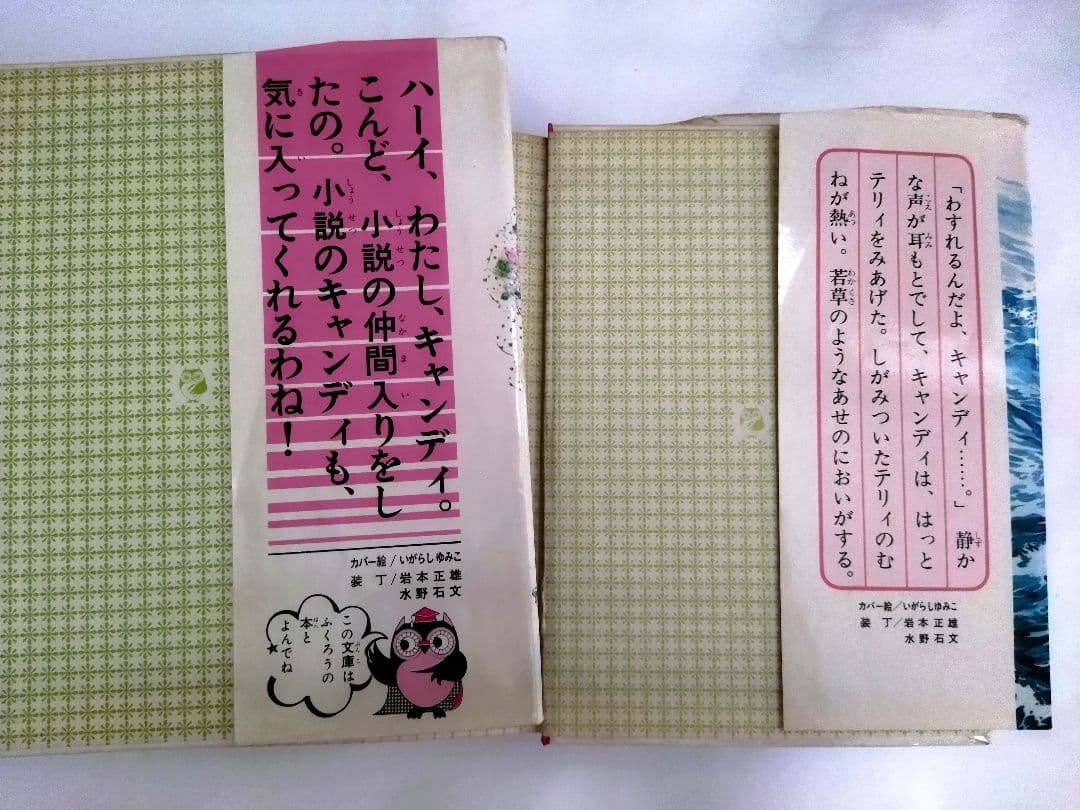 ハーイ、わたし、キャンディ。
こんど、小説の仲間入りをし
たの。小説のキャンディも、
気に入ってくれるわね！
カバー絵/いがらしゆみこ
装丁/岩本正雄
水野石文
この文庫は
ふくろうの
本と
よんでね
「わすれるんだよ、キャンディ……。」　静か
な声が耳もとでして、キャンディは、はっと
テリィをみあげた。しがみついたテリィのむ
ねが熱い。若草のようなあせのにおいがする。
カバー絵/いがらしゆみこ
装丁/岩本正雄
水野石文